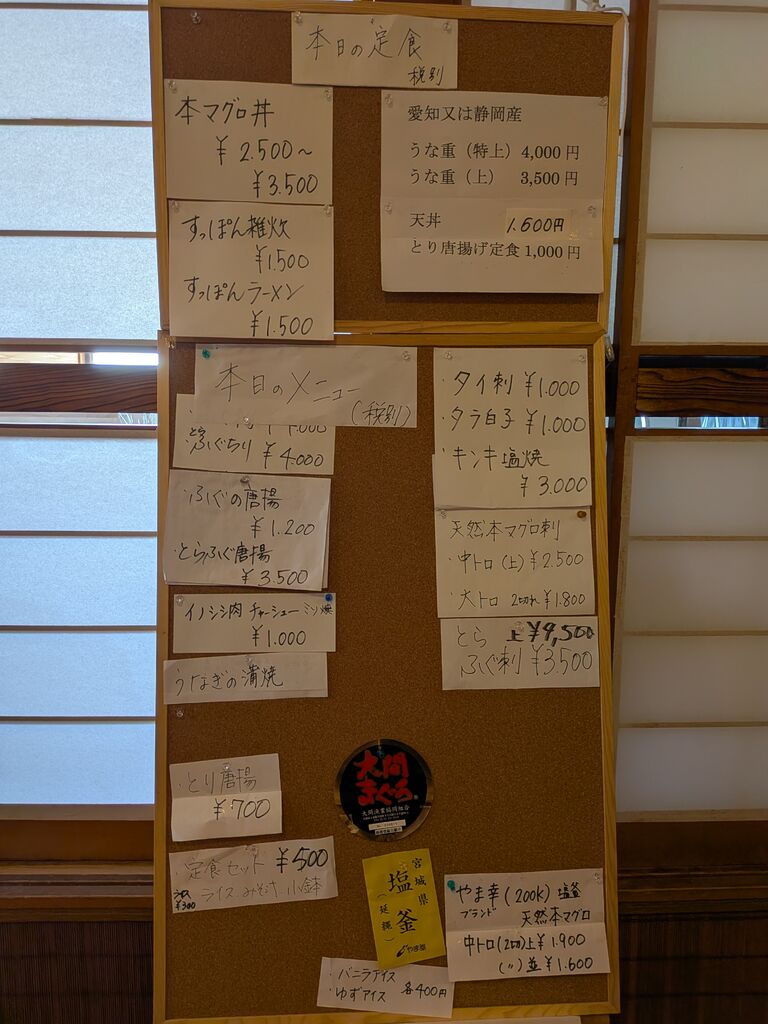 本日の定食
税別
本マグロ丼
¥2.500～
¥3.500
すっぽん雑炊
¥1.500
すっぽんラーメン
¥1.500
愛知又は静岡産
うな重（特上）4,000円
うな重（上） 3,500円
天丼 1.600円
とり唐揚げ定食1,000円
本日のメニュー
（税別）
ふぐちり ¥4.000
・ふぐの唐揚
¥1.200
・とらふぐ唐揚
¥3.500
イノシシ肉チャーシュー
¥1.000
うなぎの蒲焼
・とり唐揚
¥700
・定食セット ¥500
ライス.みそ汁.小鉢
¥300
・タイ刺 ¥1.000
・タラ白子 ¥1.000
・キンキ塩焼
¥3.000
天然本マグロ刺
・中トロ(上)¥2.500
・大トロ 2切れ¥1.800
とら 上¥9,500
ふぐ刺 ¥3.500
大間
まぐろ
大間漁業協同組合
宮城県
塩釜
（延縄）
やま幸
・やま幸(200K) 塩釜
ブランド 天然本マグロ
中トロ(2切)上¥1.900
(〃)並¥1.600
・バニラアイス
・ゆずアイス 各400円